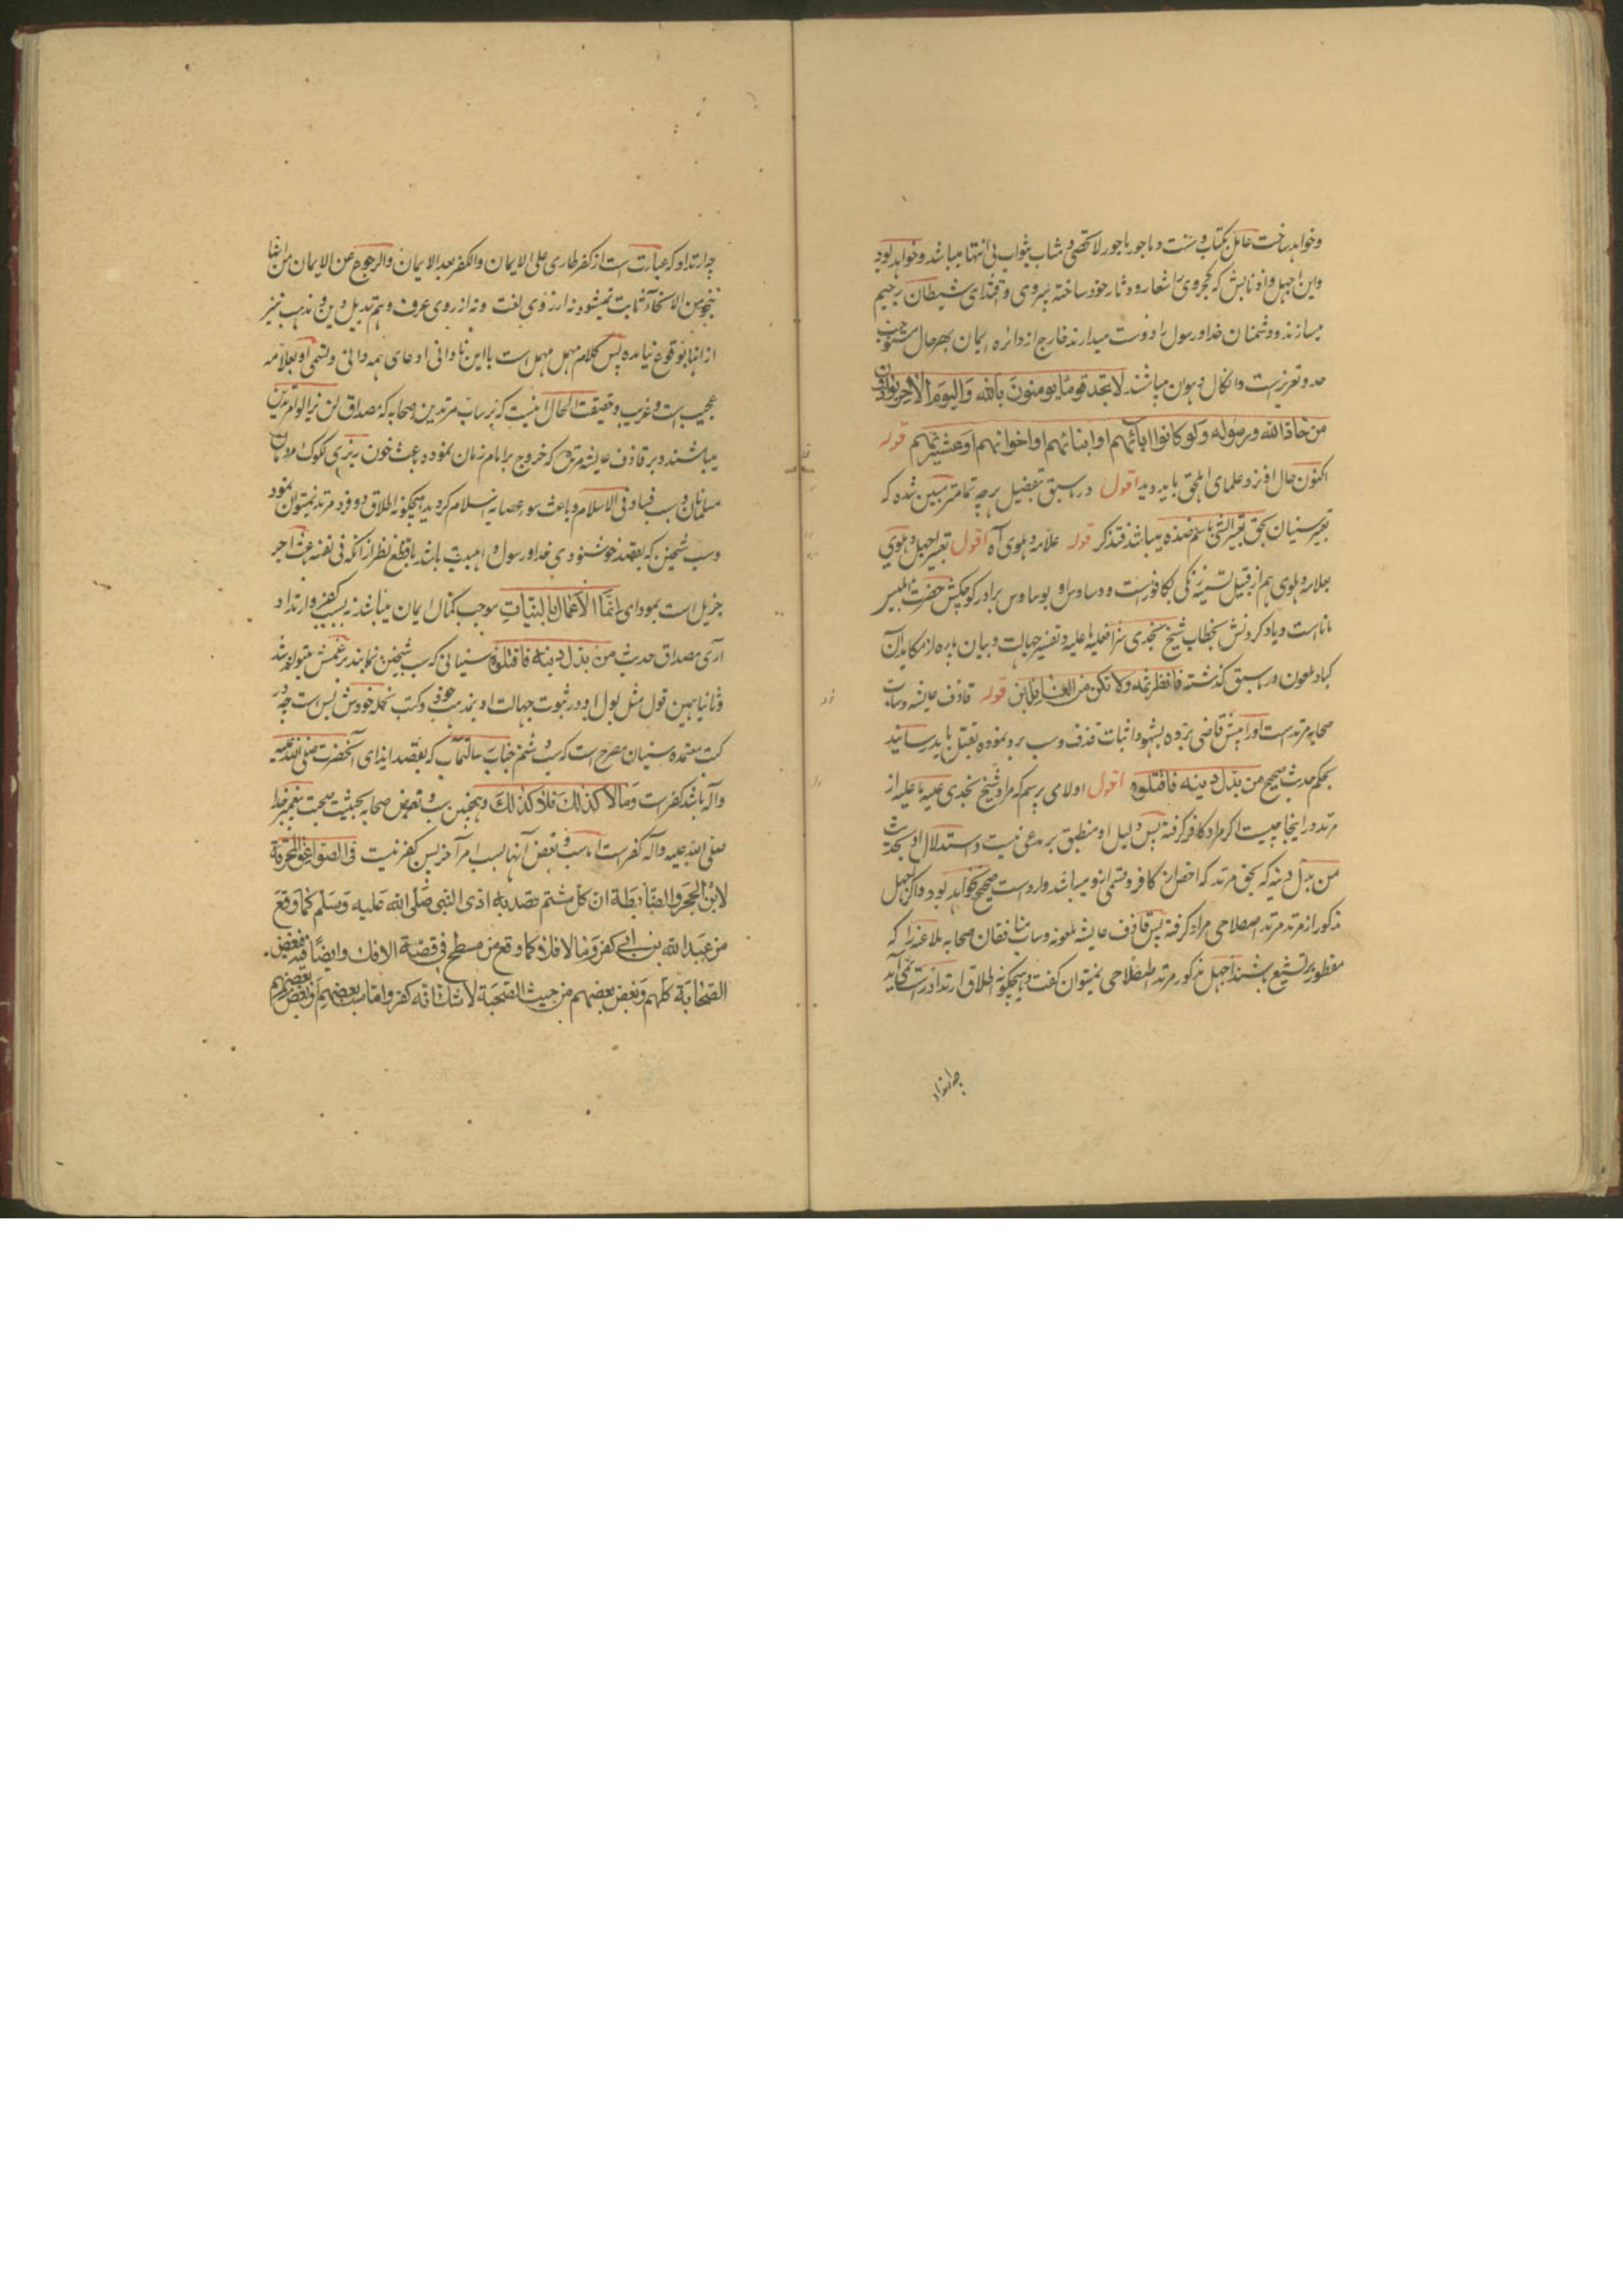 وخواهد ساخت عامل بکتاب و سنت و ماجور باجور لا تحصی و مثاب بثواب بی انتها میباشد و خواهد بود
واین اجهل و اذنابش که کجروی را شعار و دثار خود ساخته پیروی و اقتدای شیطان رجیم
میسازند و دشمنان خدا و رسول را دوست میدارند خارج از دائره ایمان بهر حال مستوجب
حد و تعزیرست و انکال و هوان میباشند لا تجد قوما یومنون بالله والیوم الآخر یوادون
من حاد الله ورسوله ولو کانوا ابائهم او ابنائهم او اخوانهم او عشیرتهم قوله
اکنون حال افراد علمای اهل حق باید دید اقول در ما سبق بتفصیل هر چه تمامتر مبین شده که
تعبیر سنیان بحق تعبیر الشی باسم ضده میباشد فتذکر قوله علامه دهلوی آه اقول تعبیر اجهل دهلوی
بعلامه دهلوی هم از قبیل تسمیه زنگی بکافورست و وساوس او بوساوس برادر کوچکش حضرت ابلیس
مانا است و یاد کردنش بخطاب شیخ نجدی سزا فعلیه ما علیه و تفسیر جهالت و بیان پاره از مکاید آن
کیاد ملعون در ما سبق گذشته فانظر ثمه ولا تکن من الغافلین قوله قاذف عایشه و ساب
صحابه مرتد است او را پیش قاضی برده بشهود اثبات قذف و سب برو نموده بقتل باید رسانید
بحکم حدیث صحیح من بدل دینه فاقتلوه اقول اولا می پرسم که مراد شیخ نجدی علیه ما علیه از
مرتد در اینجا چیست اگر مراد کافر گرفته پس دلیل او منطبق بر مدعی نیست و استدلال او بحدیث
من بدل دینه که بحق مرتد که اخص از کافر و قسمی ازو میباشد وارد است صحیح نخواهد بود و اگر اجهل
مذکور از مرتد مرتد اصطلاحی مراد گرفته پس قاذف عایشه ملعونه و ساب منافقان صحابه ملاعنه را که
مفطور بر تشیع باشند اجهل مذکور مرتد اصطلاحی نمیتوان گفت و هیچگونه اطلاق ارتداد راست نمی آید
چه ارتداد
چه ارتداد که عبارت است از کفر طاری علی الایمان والکفر بعد الایمان والرجوع عن الایمان
بنحو من الانحاء ثابت نمیشود نه از روی لغت و نه از روی عرف و هم تبدیل دین و مذهب نیز
از انها بوقوع نیامده پس کلام مهمل مهمل است با این نادانی ادعای همه دانی و تسمی او بعلامه
عجیب است و غریب و حقیقت الحال اینست که بر ساب مرتدین صحابه که مصداق لن یزالوا مرتدین
میباشند و بر قاذف عایشه که خروج بر امام زمان نموده باعث خون ریزی لکوک مردمان
مسلمانان و سبب فساد فی الاسلام و باعث سوء عصابه اسلام گردید هیچگونه اطلاق دو فرد مرتد نمیتوان نمود
وسب شیخین که بقصد خوشنودی خدا و رسول و اهلبیت باشد با قطع نظر از آنکه فی نفسه باعث اجر
جزیل است بمودای انما الاعمال بالنیات موجب کمال ایمان میباشد نه سبب کفر و ارتداد
آری مصداق حدیث من بدل دینه فاقتلوه سنیانی که سب شیخین نمایند بزعمش میتوانند شد
و ثانیا همین قول مثل بول او در ثبوت جهالت او بمذهب خود و کتب نحله خودش بس است چه در
کتب معتمده سنیان مصرح است که سب و شتم جناب رسالتمآب که بقصد ایذای آنحضرت صلی الله علیه
وآله باشد کفر است وما لا کذلک فلا کذلک و همچنین سب و بغض صحابه بحیثیت صحبت پیغمبر خدا
صلی الله علیه وآله کفر است اما سب و بغض آنها بسبب امر آخر پس کفر نیست فی الصواعق المحرقة
لابن الحجر والضابطة ان کل شتم قصد به اذی النبی صلی الله علیه وسلم کما وقع
من عبد الله بن ابی کفر وما لا فلا کما وقع من مسطح فی قصة الافک وایضا فیه فبغض
الصحابة کلهم وبغض بعضهم من حیث الصحبة لا شک انه کفر واما سب بعضهم او بغض بعضهم